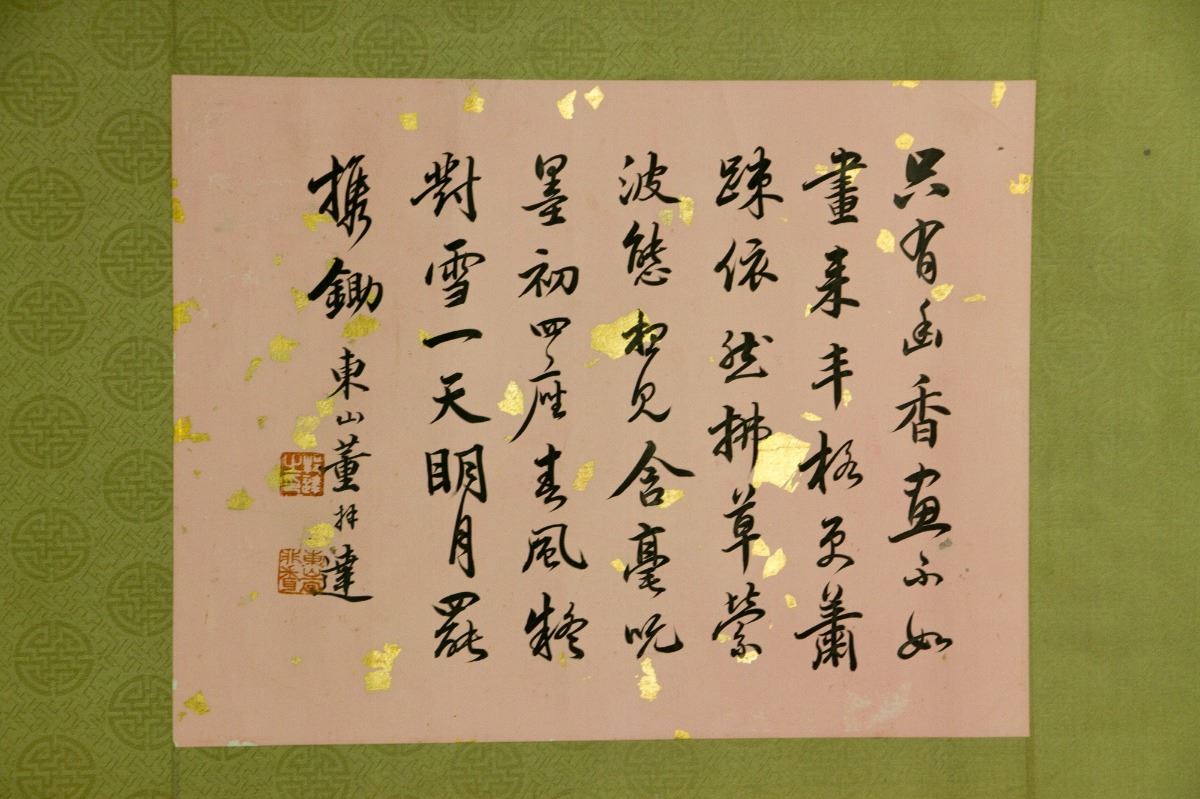 只有幽香画不如
畫来丰格更蕭
踈依然拂草縈
波態想見含毫吮
墨初四座春風疑
對雪一天明月罷
携鋤東山董邦達